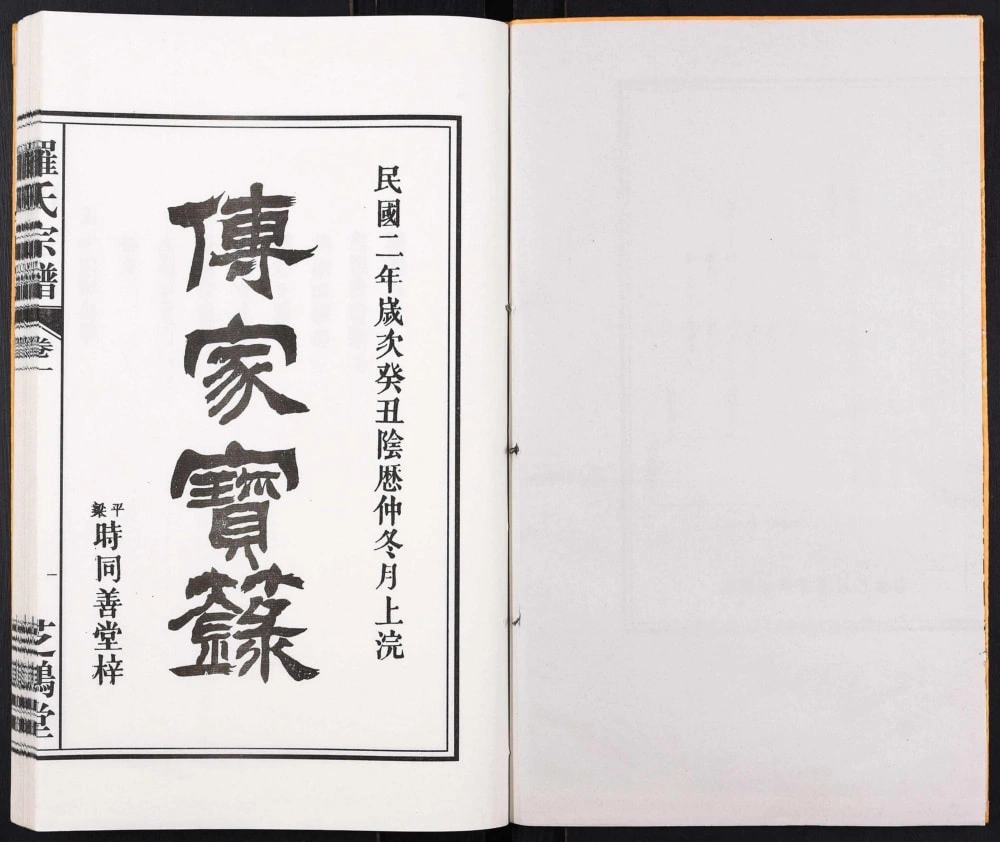 民國二年歲次癸丑陰厯仲冬月上浣
傳家寶籙
平梁時同善堂梓
羅氏宗譜
卷一
一
芝鶴堂